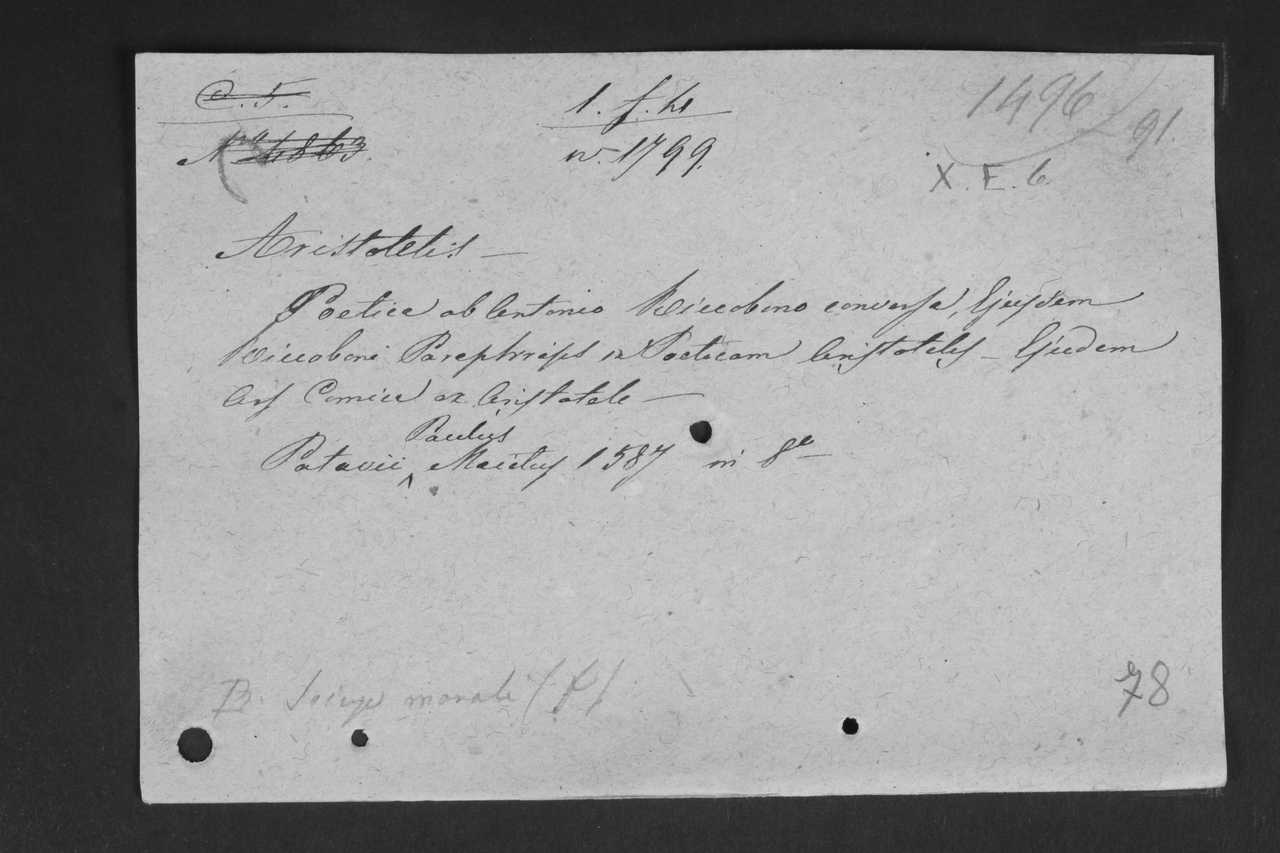 C. T.
No 4863.
1. f. h1
n. 1799.
1496
91.
X. E. 6.
Aristotelis —
Poetica ab Antonio Riccobono conversa, Ejusdem
Riccoboni Paraphrasis in Poeticam Aristotelis — Ejusdem
Ars Comica ex Aristotele —
Patavii Paulus Meietus 1587 in 8º
B. morale (f)
78